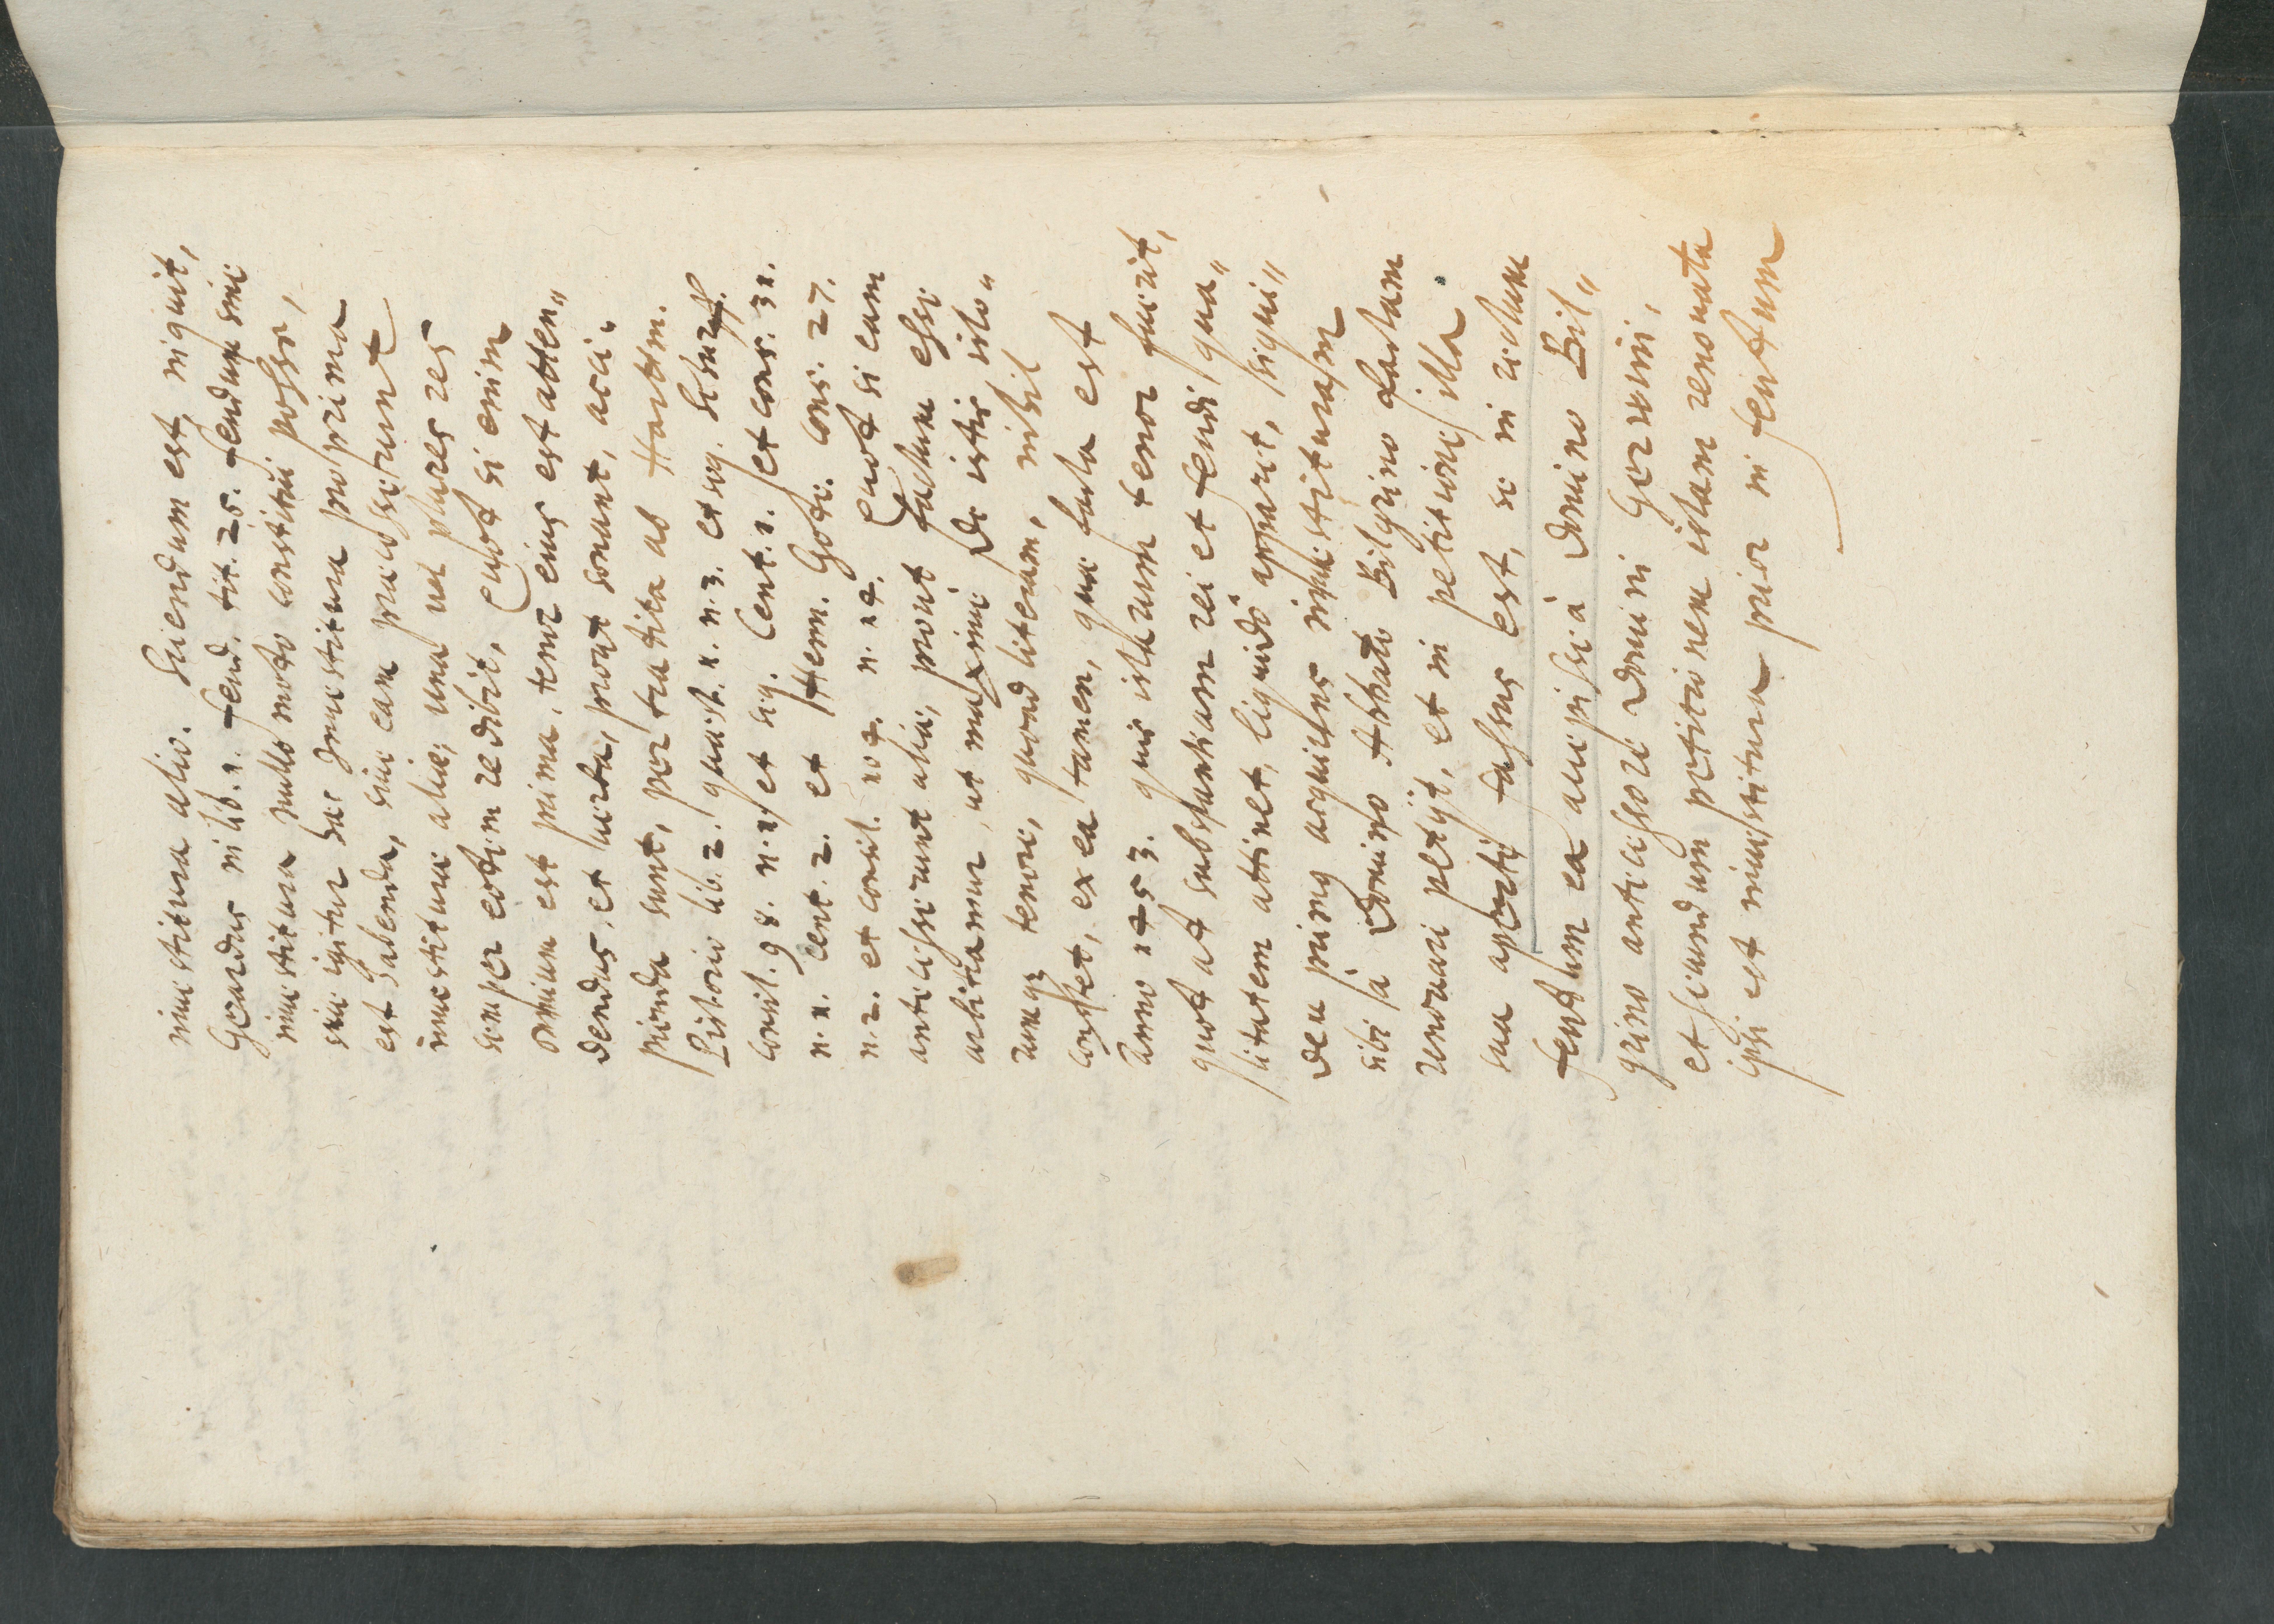 inuestitura alio. Sciendum est, inquit,
Gerardus in lib. 1. feud. tit. 25. feudum sine
inuestitura nullo modo constitui posse,
siue igitur hac Inuestitura pro prima
est habenda, siue eam praecesserunt
inuestiturae aliae, una uel plures res
semper eodem redibit, Quod si enim
omnium est prima, tenor eius est atten„
dendus, et uerba, prout sonant, acci„
pienda sunt, per tradita ab Hartm.
Pistorio lib. 2. quaest. 1. n. 3. et seq.
consil. 98. n. 1. et seq. Cent. 1. et cons. 31.
n. 1. cent. 2. et Henn. Gode. cons. 27.
n. 2. et consil. 104. n. 14. Quod si eam
antecesserunt aliae, prout factum esse
arbitramur, ut maxime de istis isto„
rumq3 tenore, quoad literam, nihil
constet, ex ea tamen, quae facta est
Anno 1453. quis istarum tenor fuerit,
quod ad substantiam rei et feudi, qua„
litatem attinet, liquido apparet, siqui„
dem primus acquirens inuestituram
sibi à Domino Abbate Bilgrino factam
renouari petijt, et in petitione illa
sua aperte fassus est, se in uerbum
feudum ea accepisse à Domino Bil„
grino antecessore Domini Gerwini,
et secundum petitionem istam renouata
ipsi est inuestitura prior in feudum